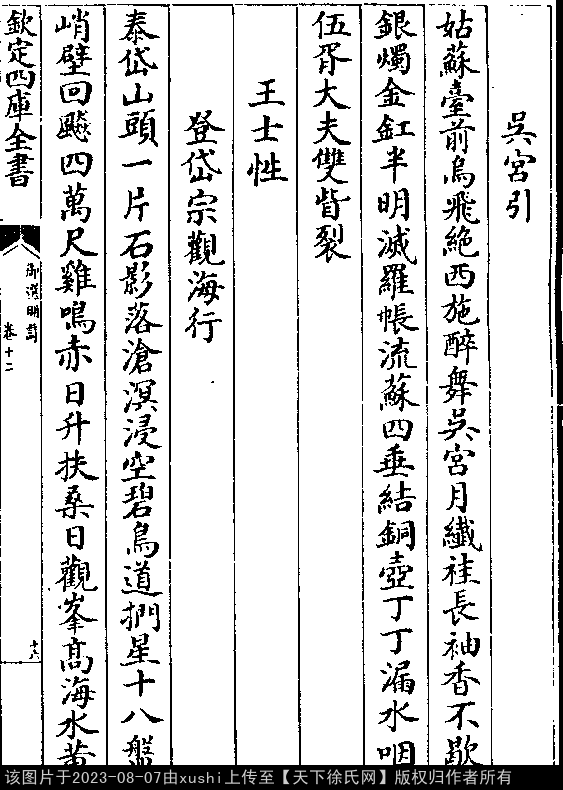 吳宮引
姑蘇臺前烏飛絶西施醉舞吳宮月纖袿長袖香不歇
銀燭金缸半明滅羅帳流蘇四垂結銅壺丁丁漏水咽
伍胥大夫雙眥裂
王士性
登岱宗觀海行
泰岱山頭一片石影落滄溟浸空碧鳥道捫星十八盤
峭壁回飈四萬尺雞鳴赤日升扶桑日觀峯髙海水黄
欽定四庫全書
御選明詩
卷十二
十六
该图片于2023-08-07由xushi上传至【天下徐氏网】版权归作者所有